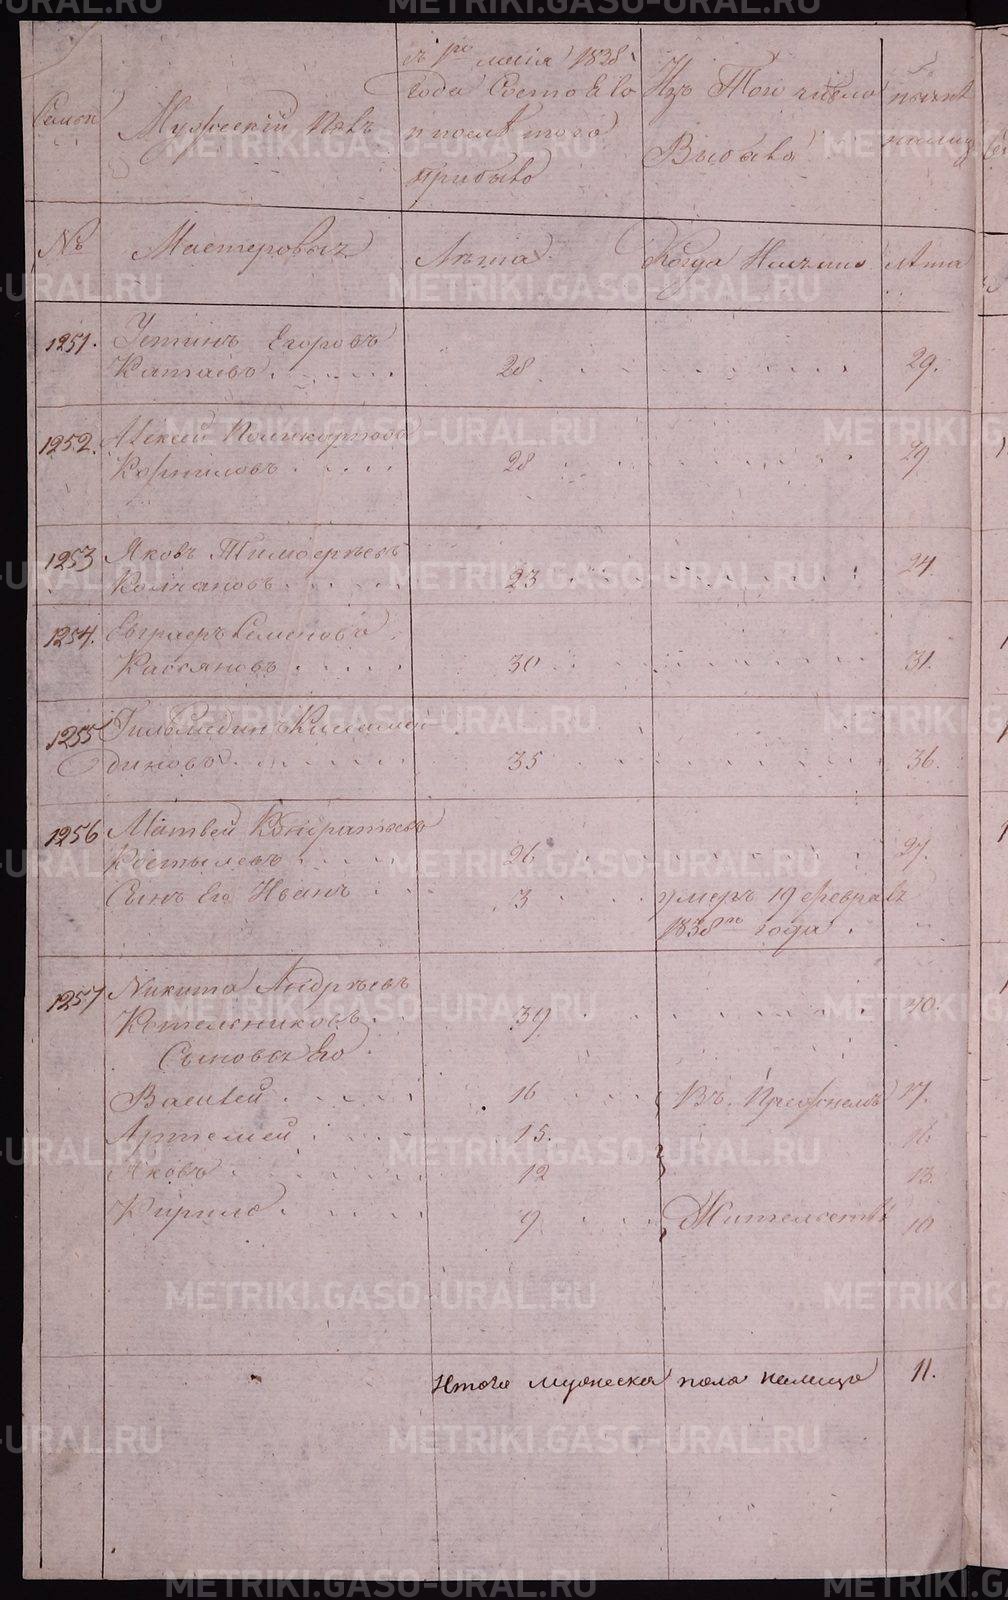 Семьи
Мужескій полъ
съ 1го маія 1838
года Состояло
и послѣ того
прибыло
Изъ Того числа
Выбыло
нынѣ
налицо
№
Мастеровыхъ
Лѣта
Когда Именно
лѣта
1251. Устинъ Егоровъ
Катаевъ 28 29.
1252. Алексей Поликарповъ
Корниловъ 28 29
1253 Яковъ Тимофеевъ
Колчановъ 23 24.
1254. Семеновъ
Касьяновъ 30 31.
1255
диновъ 35 36.
1256 Матвей Кондратьевъ
Костылевъ 26 27.
Сынъ Его Иванъ 3 умеръ 19 февраля
1838го года.
1257 Никита Андреевъ
Котельниковъ 39 40.
Сыновья Его
Василей 16 Въ Прежнемъ 17.
Артемей 15. 16
Яковъ 12 13.
Кирило 9 Жительстве 10
Итого мужеска пола налицо 11.
METRIKI.GASO-URAL.RU